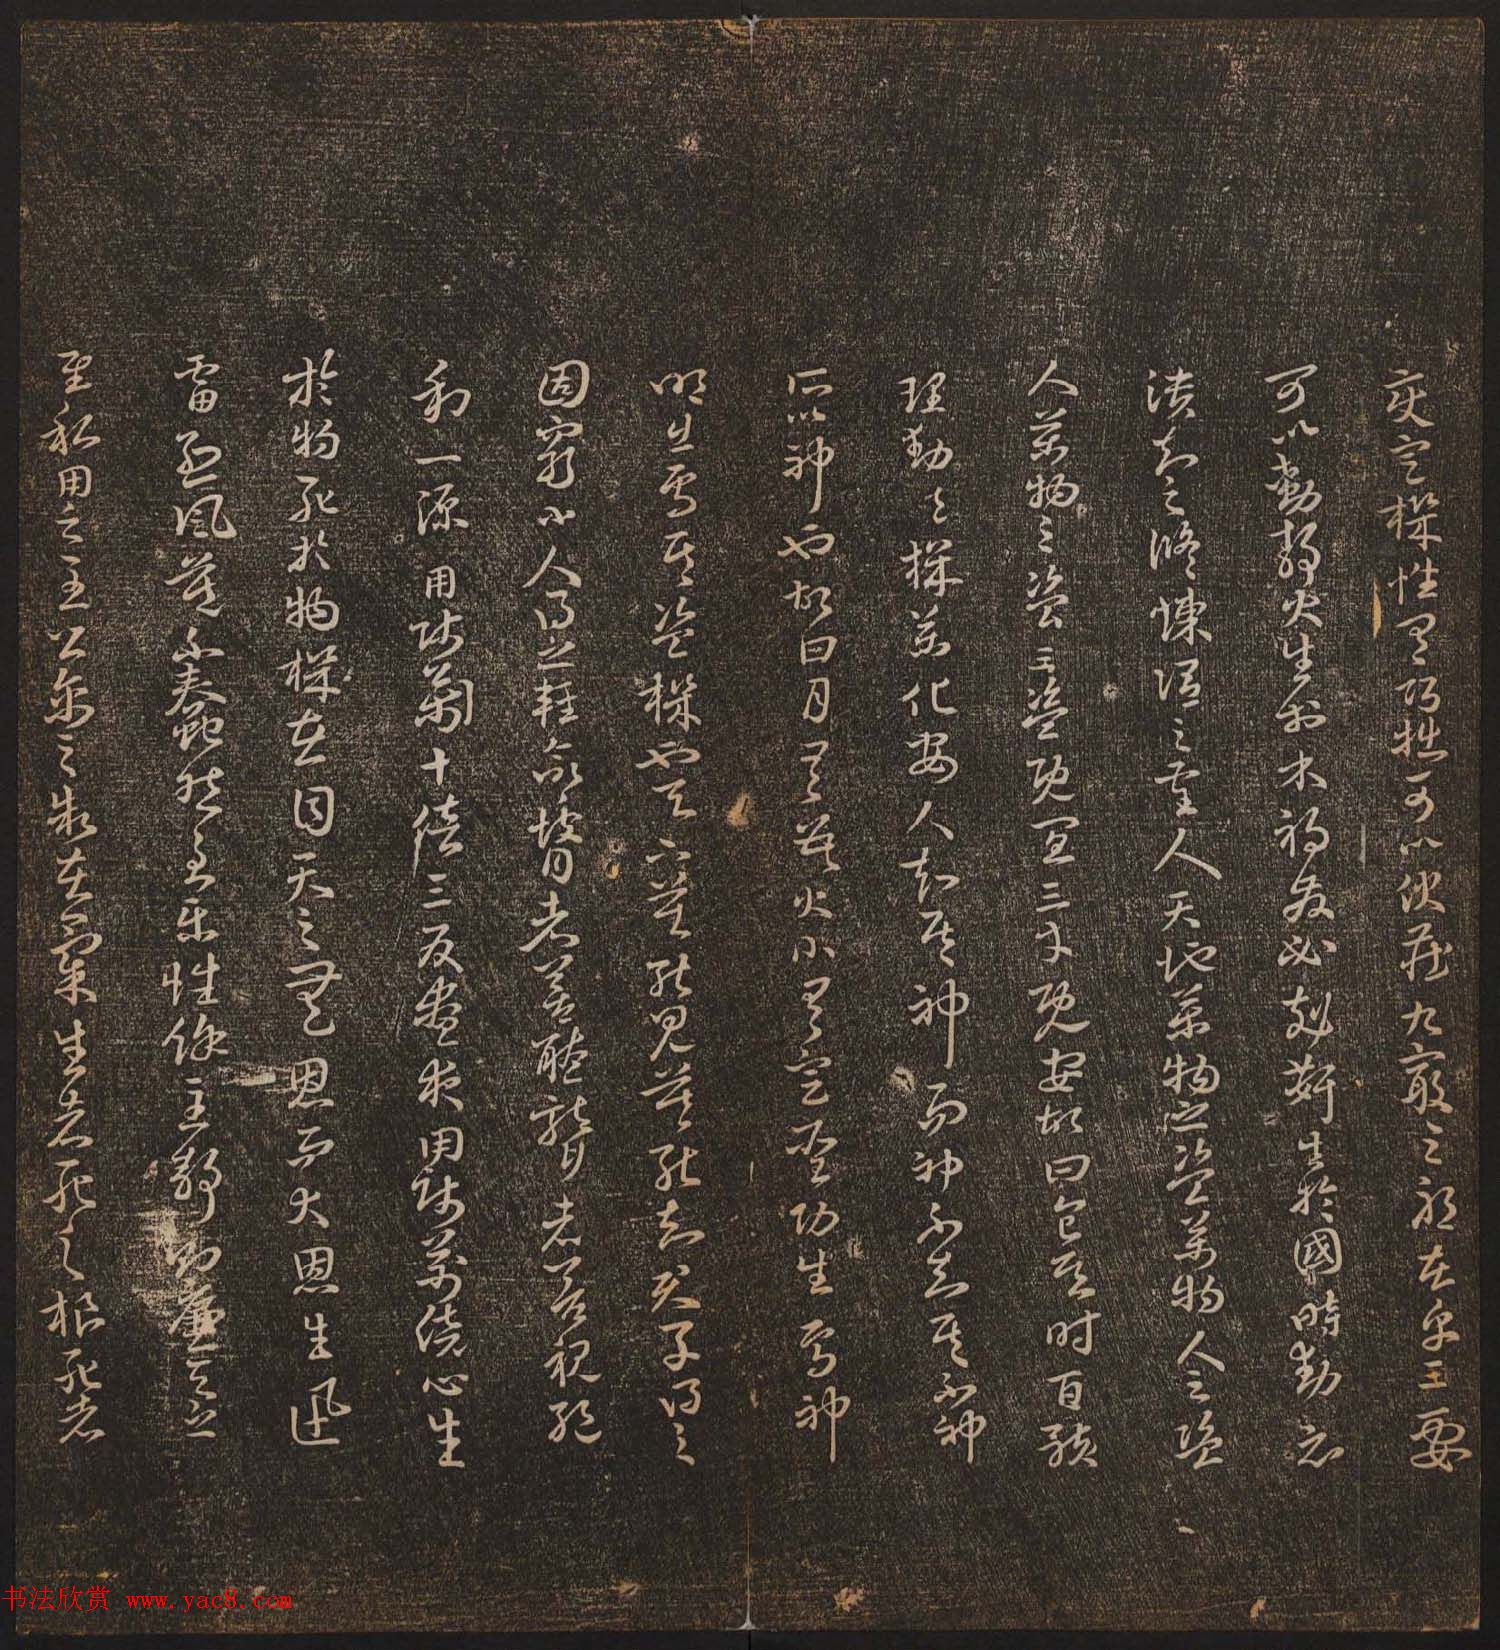 变定機性有巧拙可以伏藏九竅之邪在乎三要
可以動靜火生於木禍發必尅姧生於國時動必
潰知之修煉謂之聖人天地萬物之盜萬物人之盜
人萬物之盜三盜既宜三才既安故曰食其時百骸
理動其機萬化安人知其神而神不知其不神
所以神也故日月有數大小有定聖功生焉神
明出焉其盜機也天下莫能見莫能知君子得之
固窮小人得之輕命瞽者善聽聾者善視絕
利一源用師萬十倍三反晝夜用師萬倍心生
於物死於物機在目天之無恩而大恩生迅
雷烈風莫不蠢然至樂性餘至靜則廉天之
至私用之至公禽之制在氣生者死之根死者
书法欣赏 www.yac8.com